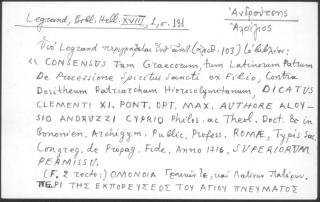 Legrand, Bibl. Hell. XVIII, 1, σ. 131
Ἀνδρούτσης
Ἀλοΐσιος
Ὑπὸ Legrand περιγράφεται (ἀριθ. 103) τὸ βιβλίον:
« CONSENSUS Tum Graecorum, tum Latinorum Patrum
De Processione Spiritus Sancti ex Filio, Contra
Dositheum Patriarcham Hierosolymitanum, DICATUS
CLEMENTI XI. PONT. OPT. MAX. AUTHORE ALOY-
SIO ANDRUZZI CYPRIO Philos. ac Theol. Doct. & in
Bononien. Archigym. Public. Profess. ROMÆ, Typis Sac.
Congreg. de Propag. Fide, Anno 1716, SUPERIORUM
PERMISSU.
(F. 2 recto:) ΟΜΟΝΟΙΑ Γραικῶν τε, καὶ Λατίνων Πατέρων.
ΠΕΡΙ ΤΗΣ ΕΚΠΟΡΕΥΣΕΩΣ ΤΟΥ ΑΓΙΟΥ ΠΝΕΥΜΑΤΟΣ